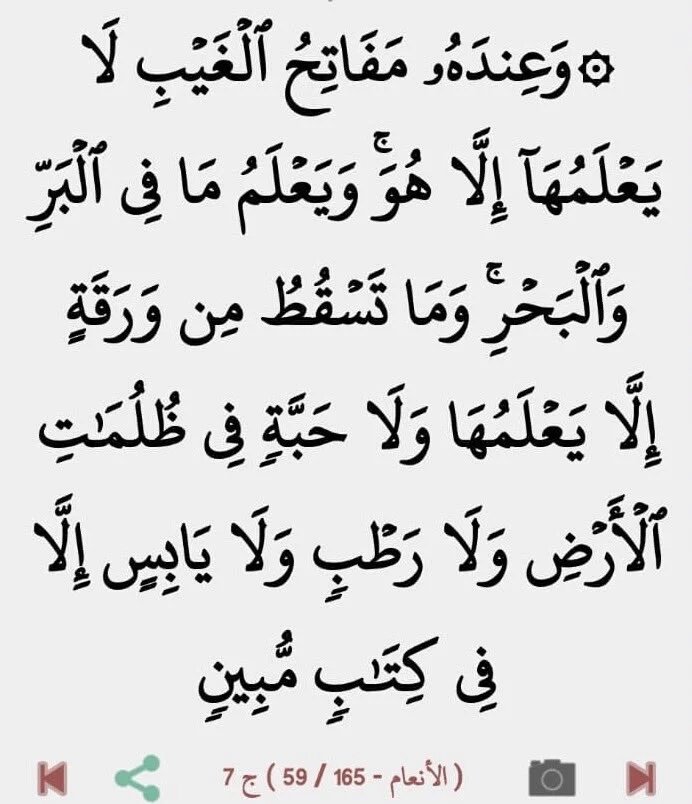 ۞ وَعِندَهُۥ مَفَاتِحُ ٱلۡغَيۡبِ لَا
يَعۡلَمُهَآ إِلَّا هُوَۚ وَيَعۡلَمُ مَا فِي ٱلۡبَرِّ
وَٱلۡبَحۡرِۚ وَمَا تَسۡقُطُ مِن وَرَقَةٍ
إِلَّا يَعۡلَمُهَا وَلَا حَبَّةٖ فِي ظُلُمَٰتِ
ٱلۡأَرۡضِ وَلَا رَطۡبٖ وَلَا يَابِسٍ إِلَّا
فِي كِتَٰبٖ مُّبِينٖ
( الأنعام - 165 / 59 ) ج 7